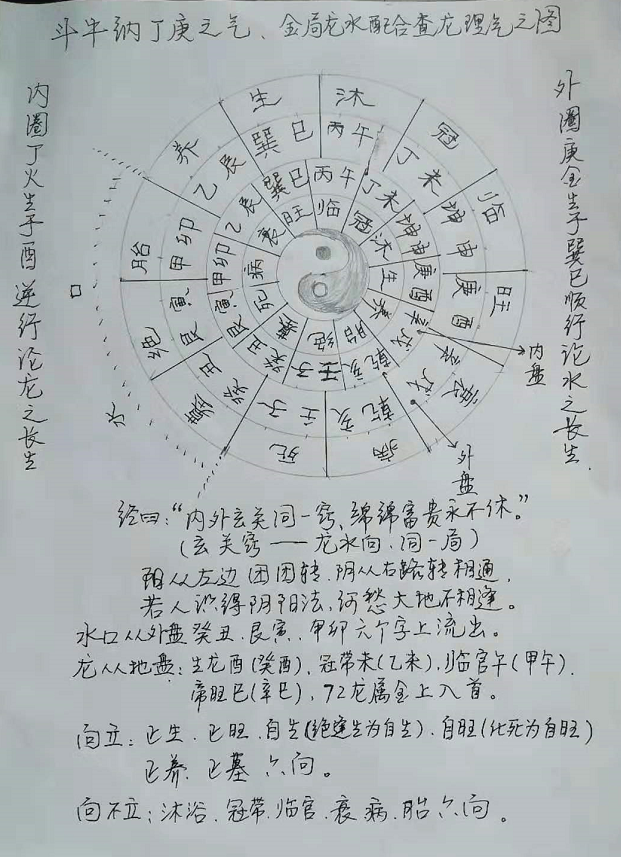 斗牛纳丁庚之气、金局龙水配合查龙理气之图
内圈丁火生于酉逆行论龙之长生
外圈庚金生于巽巳顺行论水之长生.
生 沐 冠 临 旺 衰 病 死 墓 绝 胎 养
巽巳 丙午 丁未 坤申 庚酉 辛戌 乾亥 壬子 癸丑 艮寅 甲卯 乙辰
巽巳 丙午 丁未 坤申 庚酉 辛戌 乾亥 壬子 癸丑 艮寅 甲卯 乙辰
旺 临 冠 沐 生 养 胎 绝 墓 死 病 衰
内盘
外盘
口
水
经曰:“内外玄关同一窍、绵绵富贵永不休。”
(玄关窍——龙水向.同一局)
阳从左边团团转.阴从右路转相通.
若人识得阴阳法,何愁大地不相逢。
水口从外盘癸丑、艮寅、甲卯六个字上流出。
龙从地盘:生龙酉(癸酉).冠带未(乙未).临官午(甲午).
帝旺巳(辛巳),72龙属金上入首。
向立:正生.正旺.自生(绝逢生为自生).自旺(化死为自旺)
正养.正墓六向。
向不立:沐浴.冠带.临官.衰.病.胎六向.